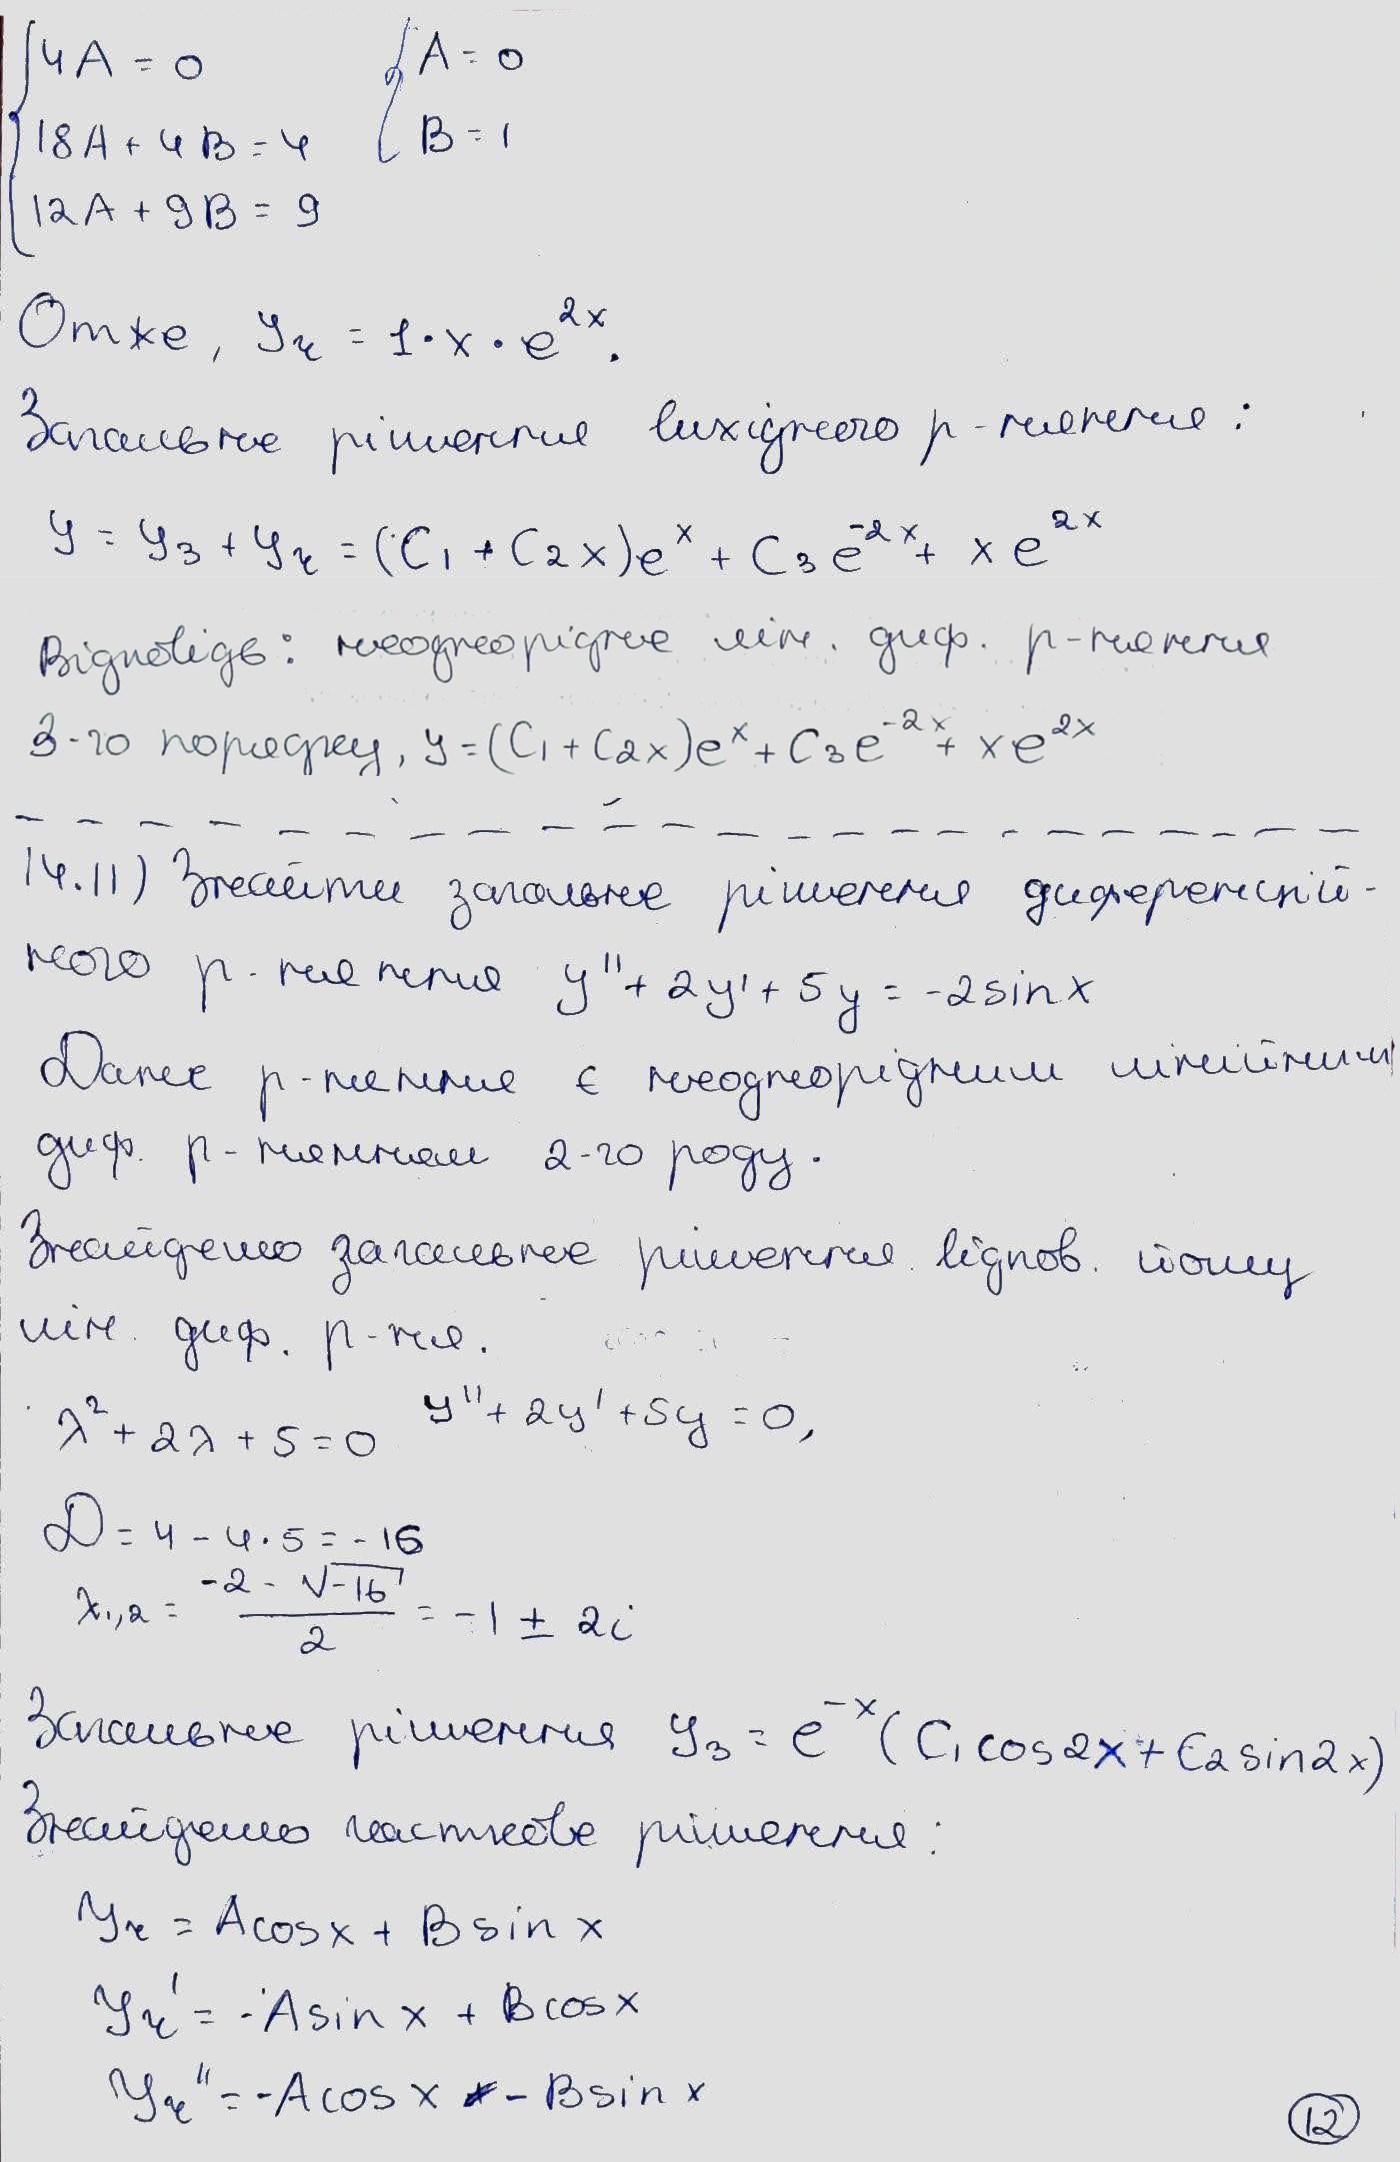 4A = 0      A = 0
18A + 4B = 4      B = 1
12A + 9B = 9
Отже, yч = 1·x·e^2x.
Загальне рішення вихідного р-няння:
y = yз + yч = (C1 + C2x)e^x + C3e^-2x + xe^2x
Відповідь: неоднорідне лін. диф. р-няння
3-го порядку, y = (C1 + C2x)e^x + C3e^-2x + xe^2x
14.11) Знайти загальне рішення диференцій-
ного р-няння y'' + 2y' + 5y = -2sinx
Дане р-няння є неоднорідним лінійним
диф. р-нянням 2-го роду.
Знайдемо загальне рішення відпов. йому
лін. диф. р-ня.
λ² + 2λ + 5 = 0   y'' + 2y' + 5y = 0,
D = 4 - 4·5 = -16
λ1,2 = (-2 - √-16)/2 = -1 ± 2i
Загальне рішення yз = e^-x(C1cos2x + C2sin2x)
Знайдемо часткове рішення:
yч = Acosx + Bsinx
yч' = -Asinx + Bcosx
yч'' = -Acosx - Bsinx
12